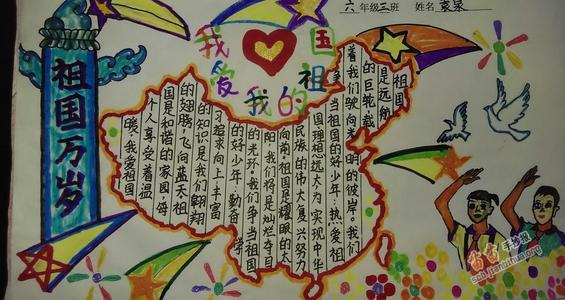 六年级三班 姓名 袁泉
我爱我的祖国
祖国万岁
祖国
是远航
的巨轮,载
着我们驶向光明的彼岸。我们
争当祖国的好少年:热爱祖
国理想远大为实现中华
民族的伟大复兴努力
向前。祖国是耀眼的太
阳,我们将是灿烂夺目
的光环。我们争当祖国
的好少年:勤奋学
习追求向上丰富
的知识是我们翱翔
的翅膀,飞向蓝天。祖
国是和谐的家园
个人享受着温
暖。我爱祖国
手抄报